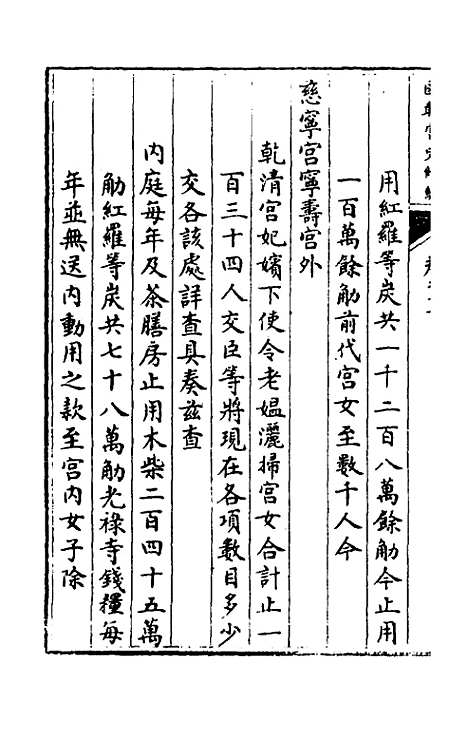 用紅羅等炭共一千二百八萬餘觔今止用
一百萬餘觔前代宮女至數千人今
慈寧宮寧壽宮外
乾清宮妃嬪下使令老媪灑掃宮女合計止一
百三十四人交臣等將現在各項數目多少
交各該處詳查具奏兹查
内庭每年及茶膳房止用木柴二百四十五萬
觔紅羅等炭共七十八萬觔光祿寺錢糧每
年並無送内動用之款至宮内女子除